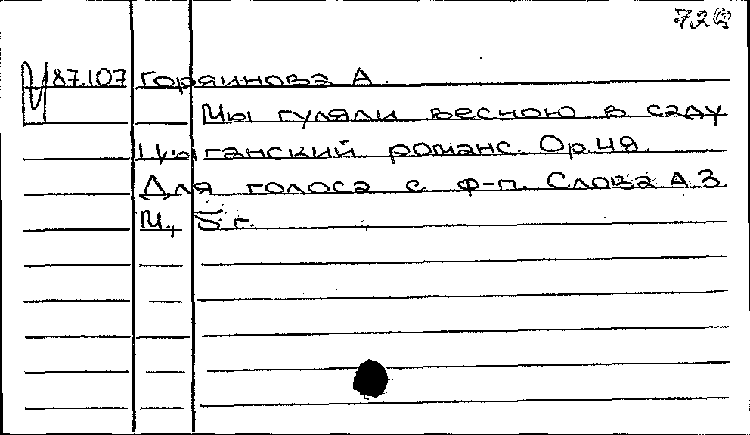 728
87.107 Горяинова А.
Мы гуляли весною в саду
Цыганский романс. Ор.49.
Для голоса с ф-п. Слова А.З.
М., Б.г.